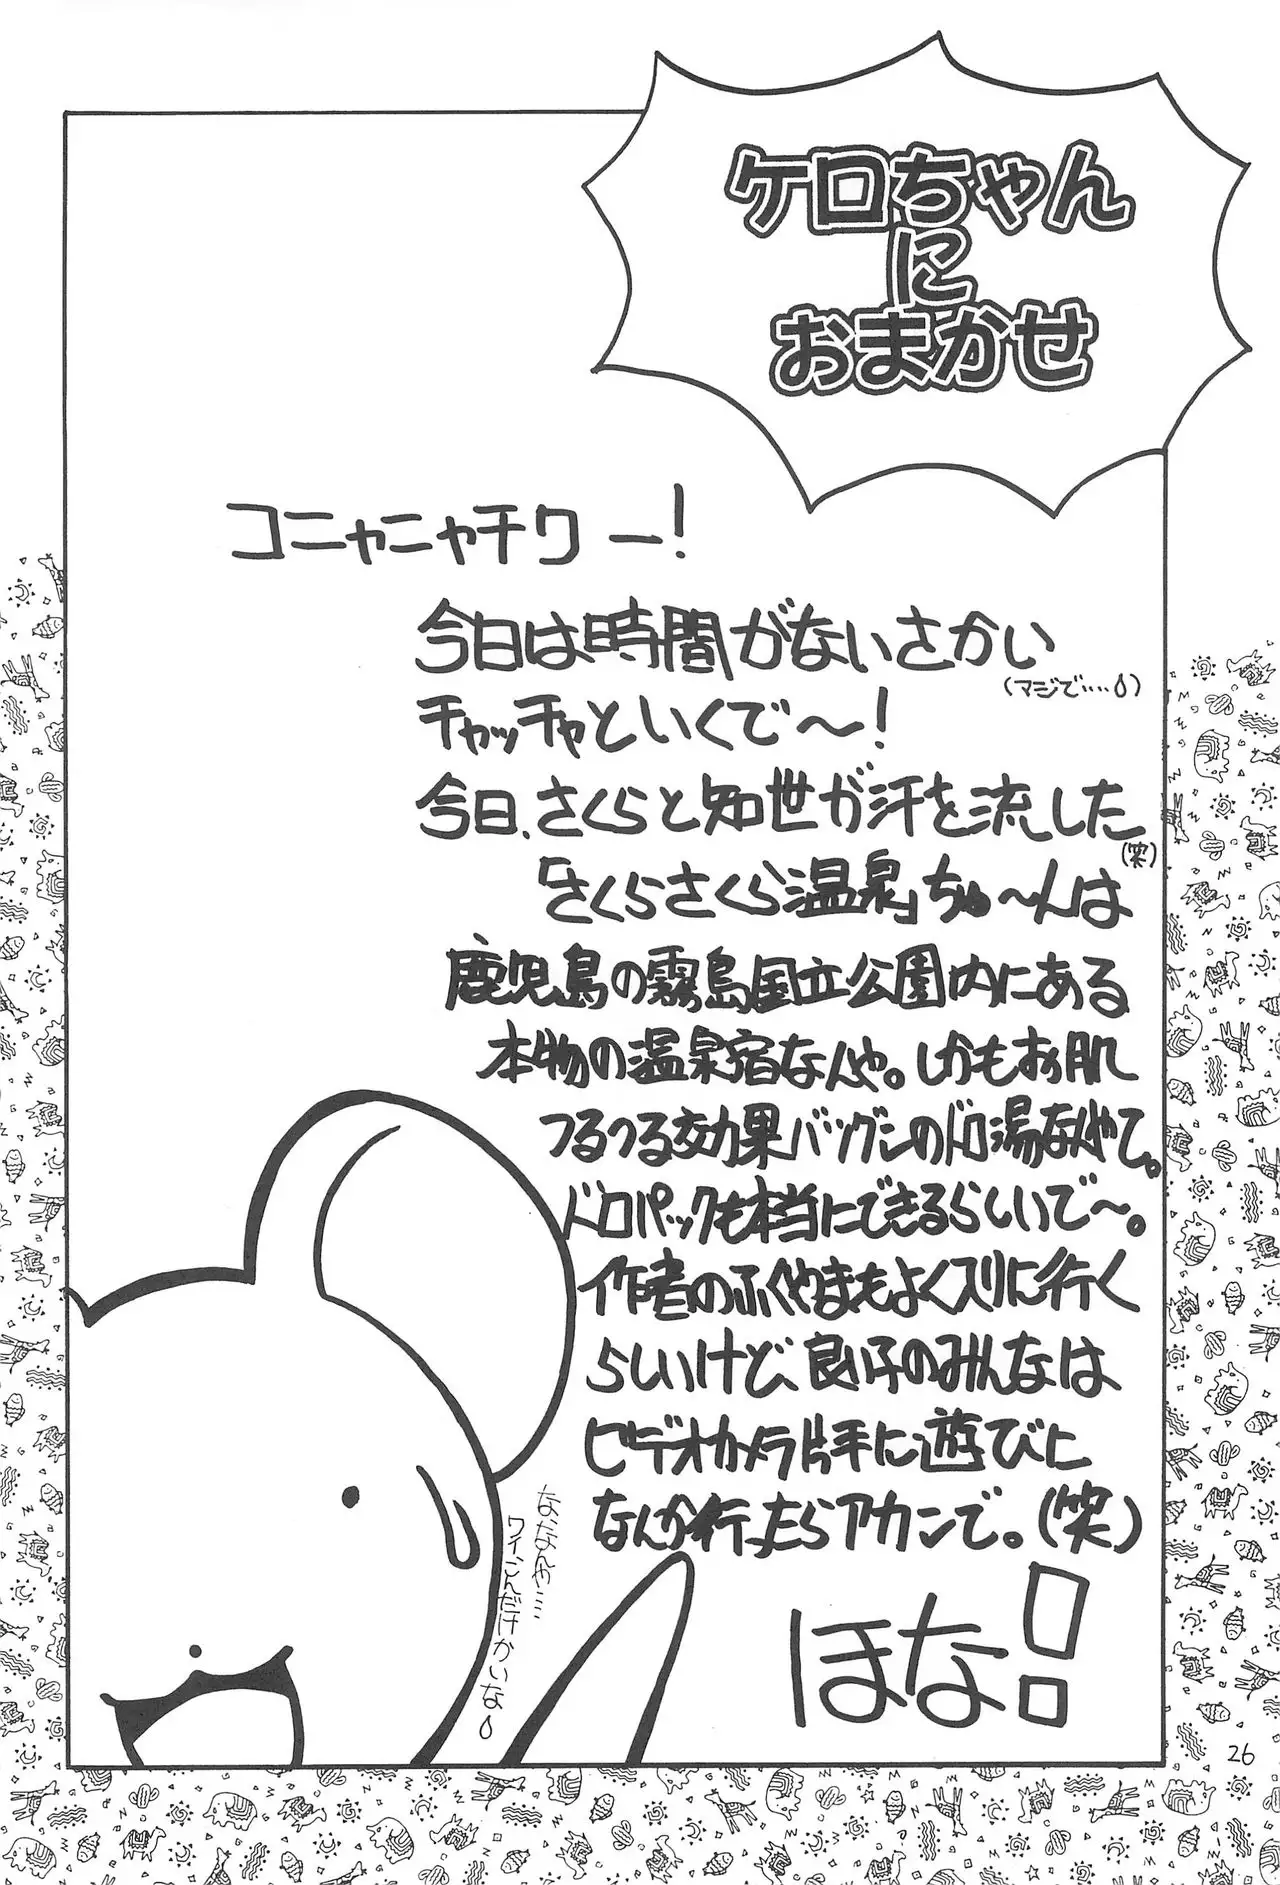 ケロちゃん
に
おまかせ
コニャニャチワー！
今日は時間がないさかい
（マジで‥‥）
チャッチャといくで〜！
今日、さくらと知世が汗を流した
（笑）
「さくらさくら温泉」ちゅ〜んは
鹿児島の霧島国立公園内にある
本物の温泉宿なんや。しかもお肌
つるつる効果バツグンのドロ湯なんやて。
ドロパックも本当にできるらしいで〜。
作者のふくやまもよくスリに行く
らしいけど、良い子のみんなは
ビデオカメラ片手に遊びに
なんか行ったらアカンで。（笑）
ほな！
なんや‥‥
ワイ、こんだけかいな
26